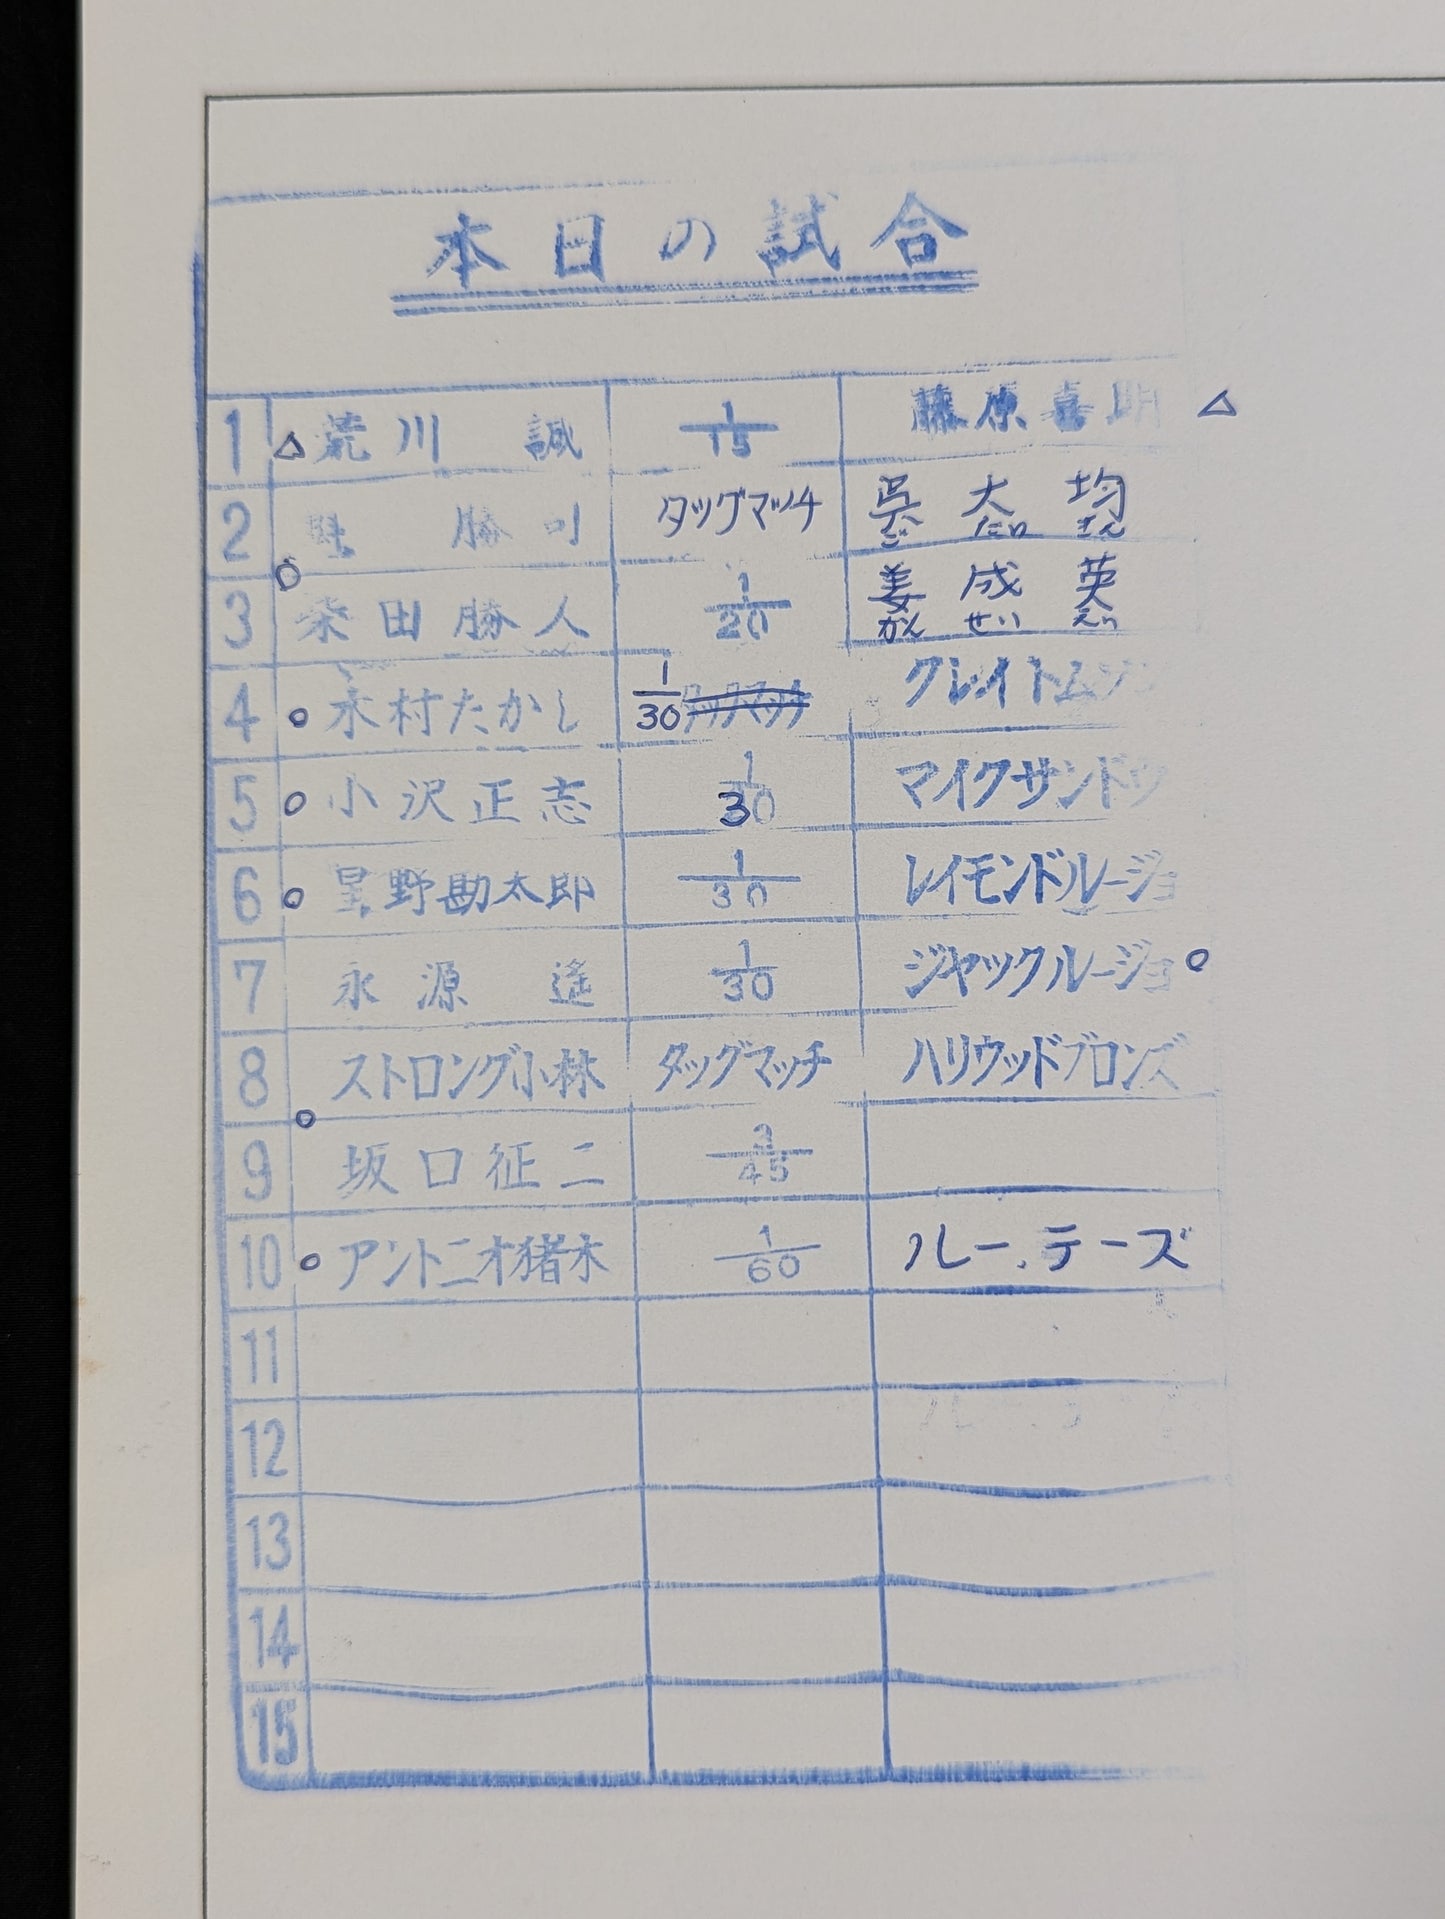 本日の試合
1 △ 荒川 誠 1/15 藤原喜明 △
2 勝 タッグマッチ 呉 大 均
ご たい きん
○
3 柴田勝人 1/20 姜 成 英
かん せい えい
4 ○ 木村たかし 1/30 タッグマッチ クレイトムソン
5 ○ 小沢正志 1/30 マイクサンドウ
6 ○ 星野勘太郎 1/30 レイモンドルージョ
7 永源 遙 1/30 ジャックルージョ ○
8 ストロング小林 タッグマッチ ハリウッドブロンズ
○
9 坂口征二 3/45
10 ○ アントニオ猪木 1/60 ルー.テーズ
11
12
13
14
15